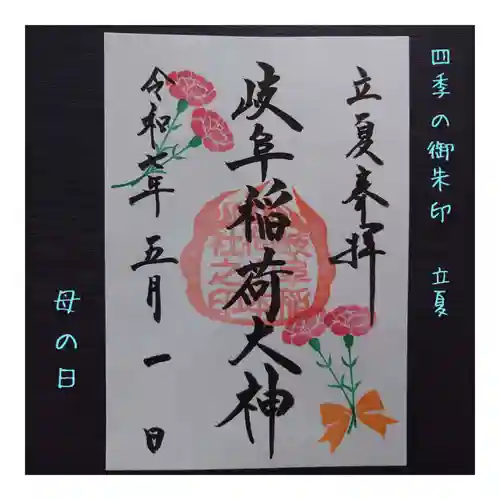 四季の御朱印 立夏
立夏奉拝
岐阜稲荷大神
令和七年 五月 一 日
母の日